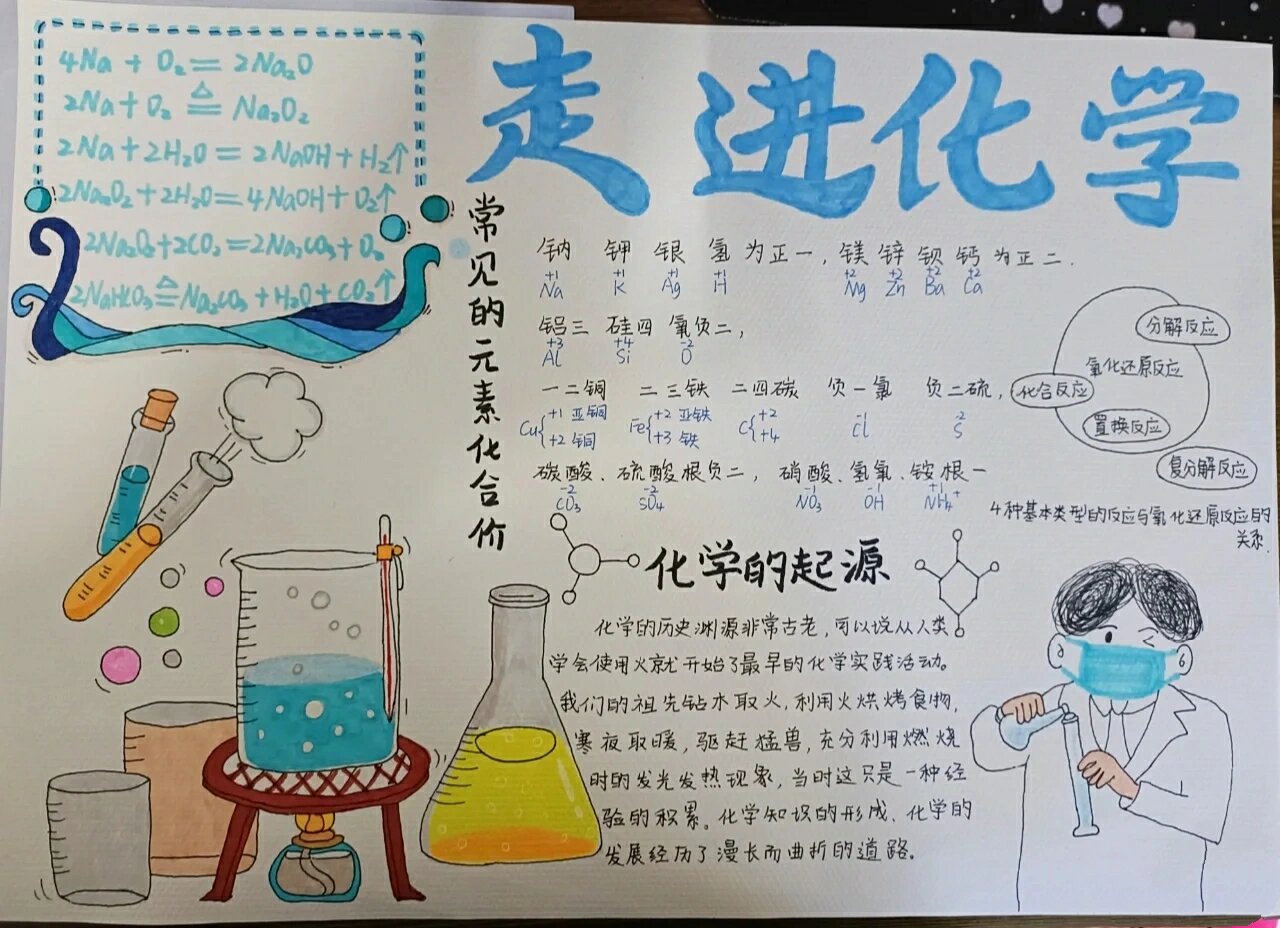 走进化学
4Na + O₂ = 2Na₂O
2Na + O₂ ≜ Na₂O₂
2Na + 2H₂O = 2NaOH + H₂↑
2Na₂O₂ + 2H₂O = 4NaOH + O₂↑
2Na₂O₂ + 2CO₂ = 2Na₂CO₃ + O₂
2NaHCO₃ ≜ Na₂CO₃ + H₂O + CO₂↑
常见的元素化合价
钠 钾 银 氢 为正一, 镁 锌 钡 钙 为正二.
+1 +1 +1 +1 +2 +2 +2 +2
Na K Ag H Mg Zn Ba Ca
铝三 硅四 氧负二,
+3 +4 -2
Al Si O
一二铜 二三铁 二四碳 负一氯 负二硫,
Cu{+1 亚铜 Fe{+2 亚铁 C{+2 -1 -2
+2 铜 +3 铁 +4 Cl S
碳酸、硫酸根负二, 硝酸、氢氧、铵根一
-2 -2 -1 -1 +1
CO₃ SO₄ NO₃ OH NH₄⁺
分解反应
氧化还原反应
化合反应
置换反应
复分解反应
4种基本类型的反应与氧化还原反应的
关系.
化学的起源
化学的历史渊源非常古老,可以说从人类
学会使用火就开始了最早的化学实践活动。
我们的祖先钻木取火,利用火烘烤食物,
寒夜取暖,驱赶猛兽,充分利用燃烧
时的发光发热现象,当时这只是一种经
验的积累。化学知识的形成、化学的
发展经历了漫长而曲折的道路。